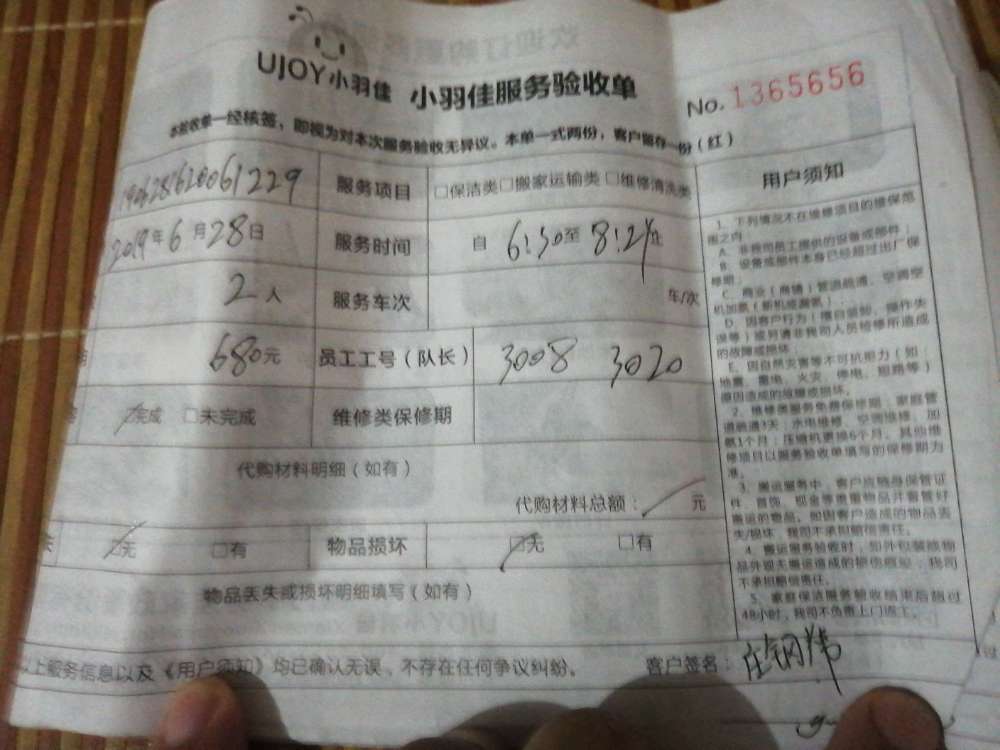 UJOY小羽佳 小羽佳服务验收单
No. 1365656
本验收单一经核签，即视为对本次服务验收无异议。本单一式两份，客户留存一份（红）
服务项目 □保洁类□搬家运输类□维修清洗类
2019年6月28日 服务时间 自 6:30至 8:24止
2人 服务车次 车/次
680元 员工工号（队长） 3008 3020
完成 □未完成 维修类保修期
代购材料明细（如有）
代购材料总额： 元
□无 □有 物品损坏 □无 □有
物品丢失或损坏明细填写（如有）
以上服务信息以及《用户须知》均已确认无误，不存在任何争议纠纷。 客户签名：
用户须知
1、下列情况不在维修项目的维保范
围之内：
A、非我司员工提供的设备或部件；
B、设备或部件本身已经超过出厂保
修期；
C、商业（商铺）管道疏通、空调空
机加氨（新机或漏氨）；
D、因客户行为（擅自装卸、操作失
误等）或另请非我司人员检修所造成
的故障或损坏；
E、因自然灾害等不可抗原力（如：
地震、雷电、火灾、停电、短路等）
原因造成的故障或损坏。
2、维修类服务免费保修期：家庭管
道疏通3天；水电维修、空调维修、加
氨1个月；压缩机更换6个月。其他维
修项目以服务验收单填写的保修期为
准。
3、搬运服务中，客户应随身保管证
件、首饰、现金等贵重物品并看管好
搬运的物品，如因客户造成的物品丢
失/损坏，我司不承担赔偿责任。
4、搬运服务验收时，如外包装或物
品外观无搬运造成的损伤痕迹，我司
不承担赔偿责任。
5、家庭保洁服务验收结束后超过
48小时，我司不负责上门返工。